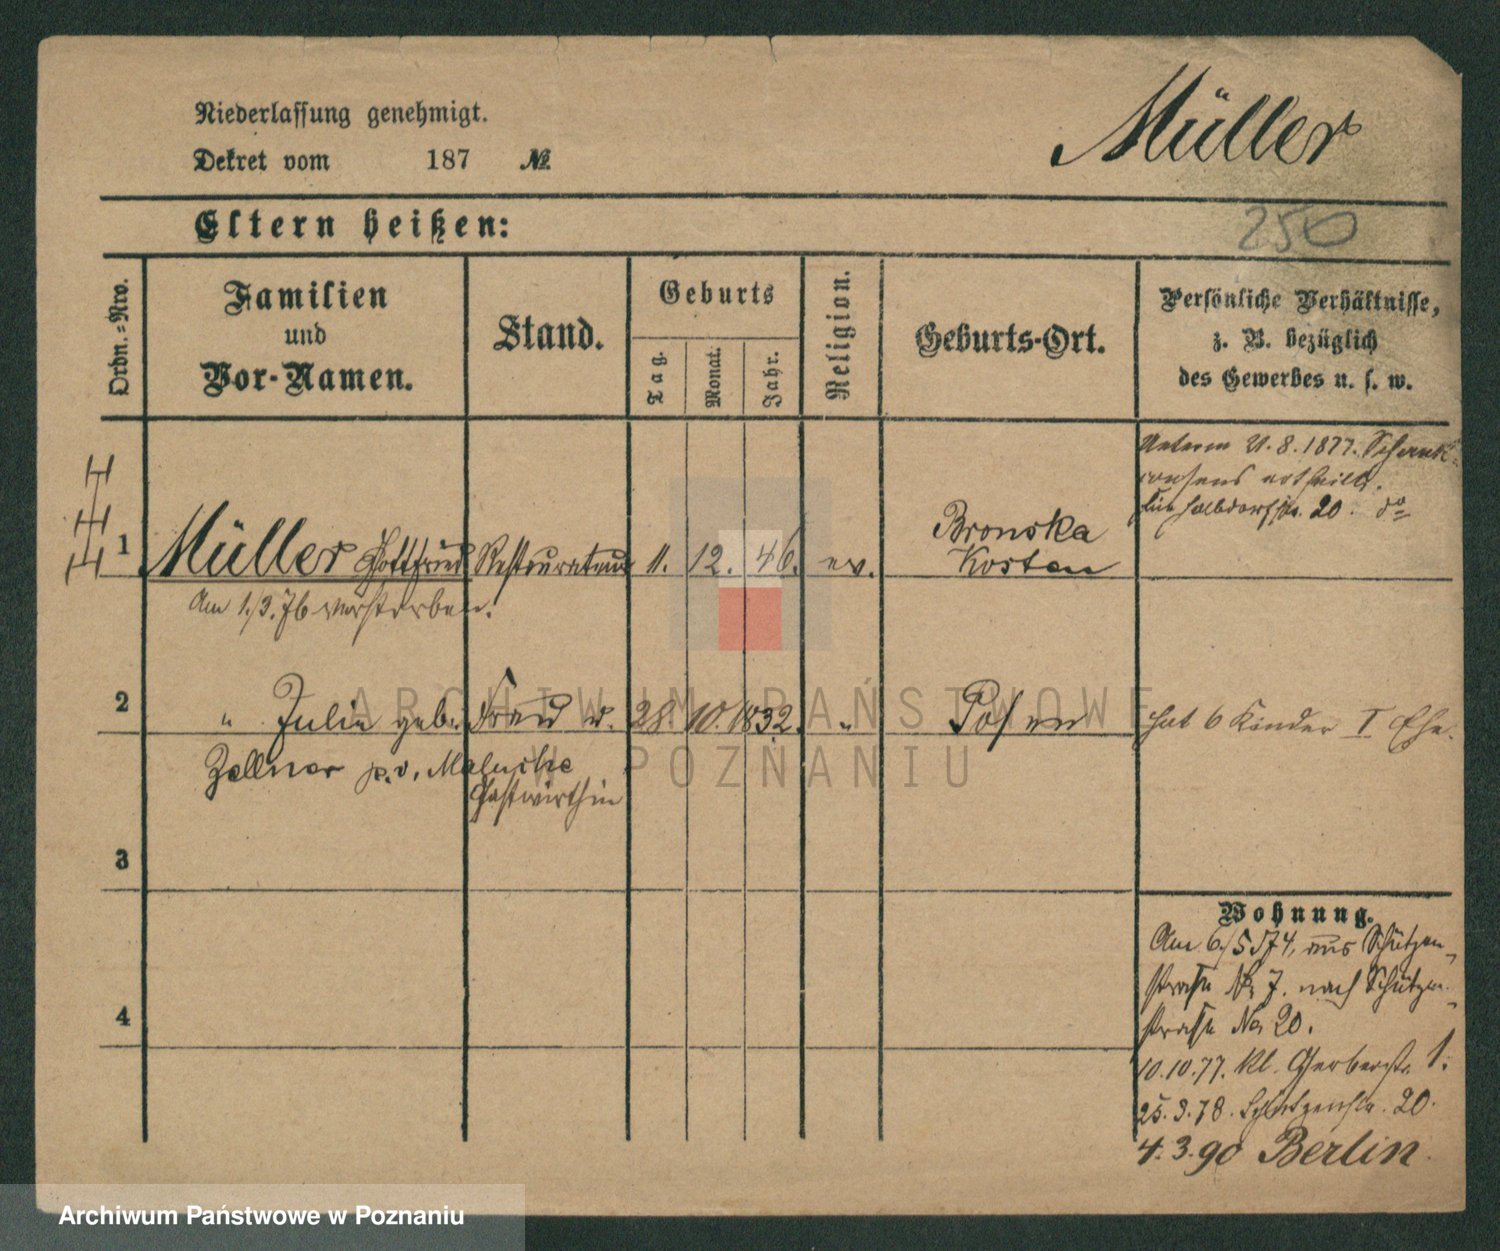 Niederlassung genehmigt.
Dekret vom 187 №
Müller
Eltern heißen:
250
Ordn.=Nro.
Familien
und
Vor-Namen.
Stand.
Geburts
Tag.
Monat.
Jahr.
Religion.
Geburts-Ort.
Persönliche Verhältnisse,
z. B. bezüglich
des Gewerbes u. s. w.
Unterm 21.8.1877. Schank-
consens ertheilt.
für Halbdorfstr. 20. do
1 Müller Gottfried Restaurateur 11. 12. 46. ev. Bronska
Kosten
Am 1./3. 76 verstorben.
2 " Julie geb. Frau u. 28. 10. 1832. " Posen hat 6 Kinder I Ehe.
Zellner p. v. Maluske
Gastwirthin
3
4
Wohnung.
Am 6./5 74, aus Schützen-
straße No 7. nach Schützen-
straße No 20.
10.10.77. kl. Gerberstr. 1.
25.3.78. Schützenstr. 20.
4.3.90 Berlin.
ARCHIWUM PAŃSTWOWE
W POZNANIU
Archiwum Państwowe w Poznaniu